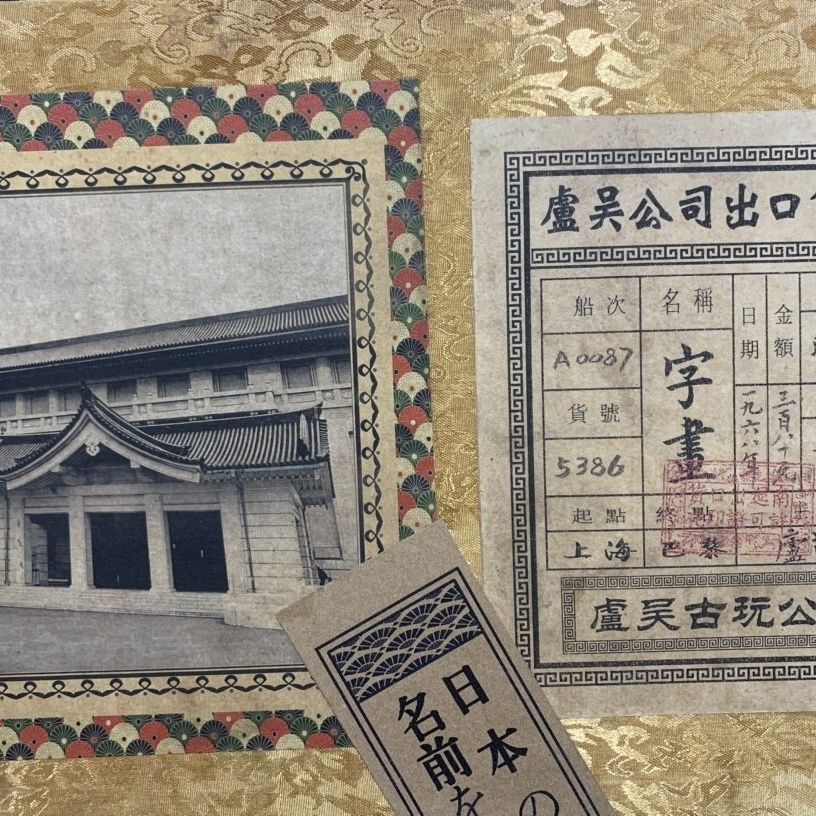 盧吴公司出口
船次
名稱
日期
金額
A0087
字畫
一九六八年
三百八十
貨號
5386
起點
終點
上海
巴黎
盧吴古玩公
日本の
名前を